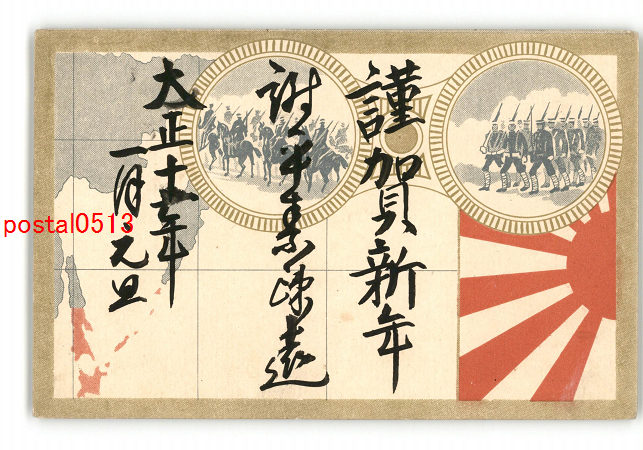 謹賀新年
謝平素疎遠
大正十六年
一月元旦
postal0513